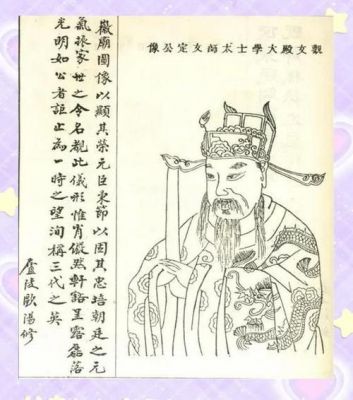 觀文殿大學士太師文定公像
嚴廟圖像以顯其榮元臣秉節以固其忠培朝廷之元
氣振家世之令名觀此儀形惟肖儼然軒豁呈露磊落
光明如公者詎止為一時之望洵稱三代之英
廬陵歐陽修